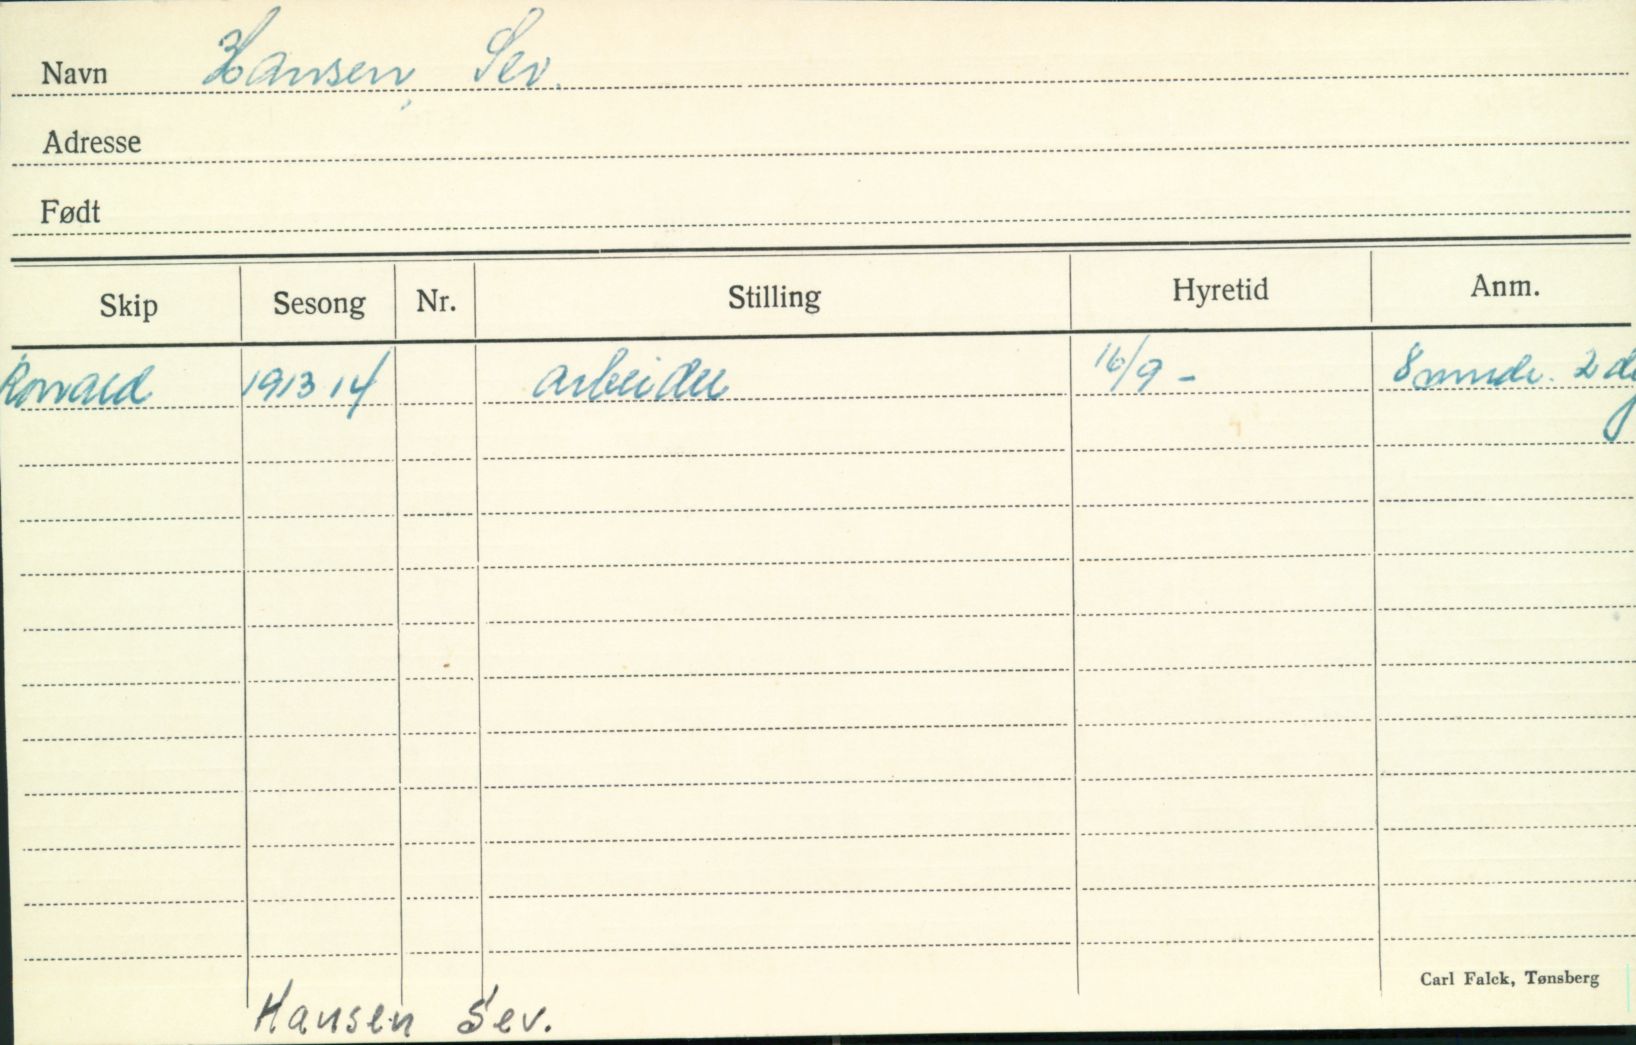 Navn Hansen, Sev.
Adresse
Født
Skip Sesong Nr. Stilling Hyretid Anm.
Ronald 1913 14 arbeider 16/9 - 8 mndr. 2 dg
Carl Falck, Tønsberg
Hansen Sev.